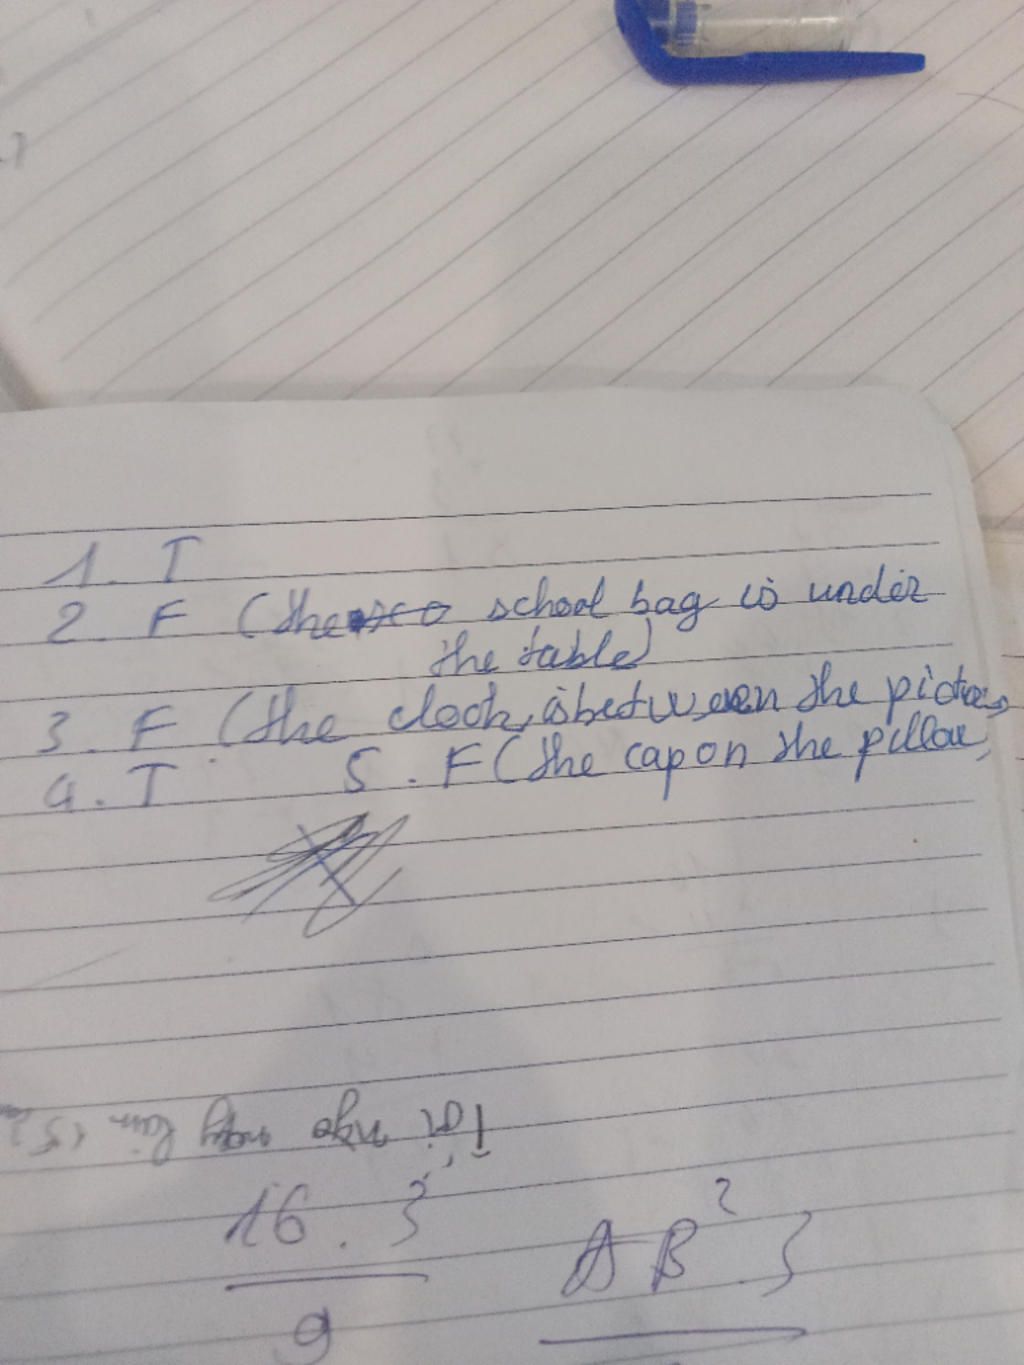 1. T
2. F (the school bag is under
the table)
3. F (the clock is between the pictures)
4. T 5. F (the cap on the pillow)
16 . 3
9
AB² . 3